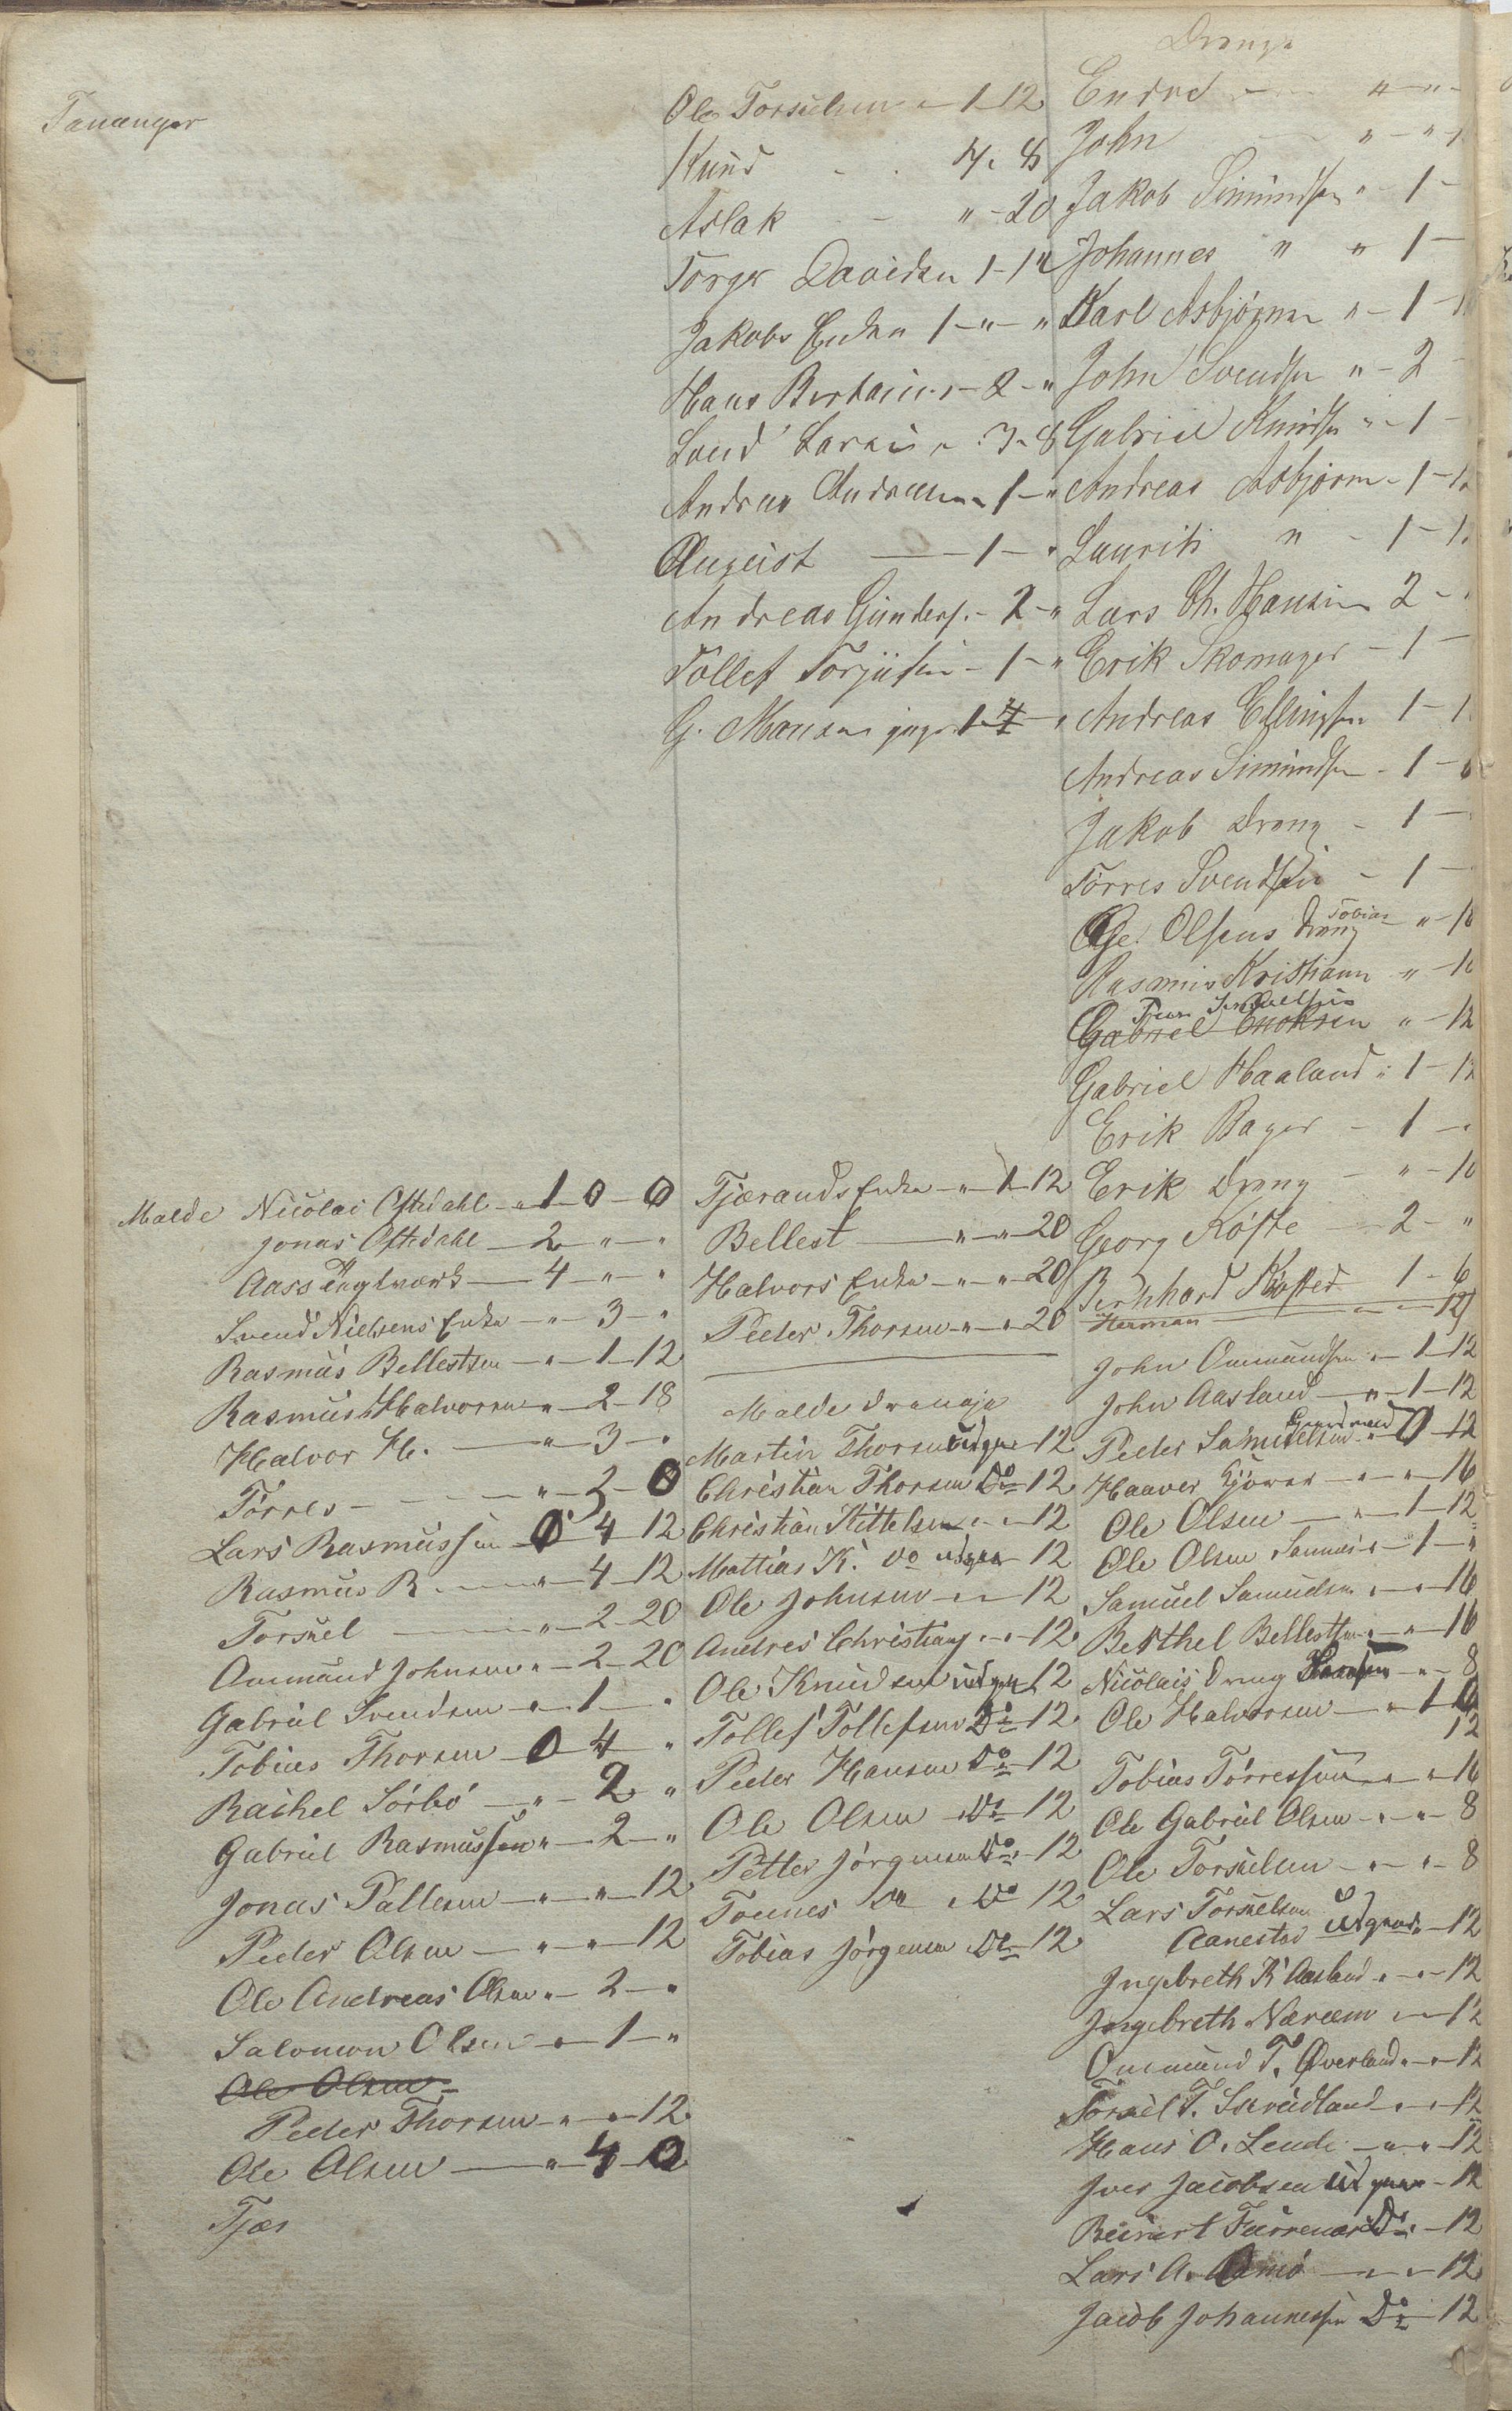 Tananger
Ole Torsulsen " 1 12
Knud - - 4. 8
Aslak - " - 20
Torger Davidsen 1 - 12
Jakobs Enke 1 - " - "
Hans Bertsin - 2 - "
Svend Larsin " 3 - 8
Andreas Andreasen 1 - "
August - 1 - "
Andreas Gunders. - 2 - "
Tollef Torjusen - 1 - "
G. Monsen 1 -
Drenge
Endre - " - " -
John - " - " -
Jakob Simundsen " - 1 -
Johannes " " 1 -
Karl Asbjørnsen " - 1 -
John Svendsen " - 2 -
Gabriel Knudsen " - 1 -
Andreas Asbjørns - 1 -
Laurits " - 1 -
Lars Ch. Hansen 2 - "
Erik Skomager - 1 -
Andreas Ellingsen 1 -
Andreas Simundsen - 1 -
Jakob Dreng - 1 -
Tørres Svendsen - 1 -
Olsens Dreng Tobias " - 10
Rasmus Kristians " - 10
Gabriel Enoksen " - 12
Gabriel Haaland " 1 - 12
Erik Bager - 1 - "
Erik Dreng - " - 10
Georg Køste - 2 - "
Bernhard Køster 1 - 6
Herman - " - " - 12
John Ommundsen " - 1 - 12
John Aasland - " - 1 - 12
Peder Samuelsen " 0 - 12
Haaver Gjower - " - " - 16
Ole Olsen - " - 1 - 12
Ole Olsen Sannes " - 1 - "
Samuel Samuelsen " - " - 16
Berthel Bellestsen " - " - 16
Nicolais Dreng " - " - 8
Ole Halvorsen - " - 1 0
12
Tobias Tørressen - " - " 16
Ole Gabriel Olsen - " - " - 8
Ole Torsulsen - " - " - 8
Lars Torsulsen
Aanestad udgaard " - 12
Ingebreth K Aasland " - " - 12
Ingebreth Næreem " - " - 12
Ommund T. Øverland " - " - 12
Torsul T. Skreidland " - " - 12
Hans O. Lende - " - " - 12
Iver Jacobsen udgaar - 12
Beinert Do - 12
Lars A. Omø - " - " - 12
Jacob Johannessen Do - 12
Malde Nicolai Oftedahl - " 1 0 - 0
Jonas Oftedahl - 2 " - "
Aass Teglværk - 4 " - "
Svend Nielsens Enke - " - 3 - "
Rasmus Bellestsen - " - 1 - 12
Rasmus Halvorsen " - 2 - 18
Halvor H. - " - 3 - "
Tørres - " - 2 - 0
Lars Rasmussen 0 4 12
Rasmus R. - " - 4 - 12
Torsuel - " - 2 - 20
Ammund Johnsen " - 2 - 20
Gabriel Svendsen " - 1 - "
Tobias Thorsen - 0 4 "
Rachel Sørbø - " - 2 "
Gabriel Rasmussen " - 2 - "
Jonas Pallesen - " - " - 12
Peder Olsen - " - " - 12
Ole Andreas Olsen " - 2 - "
Salomon Olsen - " - 1 - "
Ole Olsen
Peder Thorsen - " - " - 12
Ole Olsen - " - 4 0
Tjær
Tjærands Enke - " - 1 - 12
Bellest - " - " - 20
Halvors Enke - " - " - 20
Peder Thorsen - " - " - 20
Malde Drenge
Martin Thorsen udgaar - 12
Christian Thorsen Do - 12
Christian Kittelsen " - " - 12
Mattias K. do udgaar 12
Ole Johnsen - " - 12
Andres Christians " - " - 12
Ole Knudsen udgaar 12
Tollef Tollefsen Do - 12
Peder Hansen Do - 12
Ole Olsen " Do - 12
Petter Jørgensen Do - 12
Tønnes do " Do 12
Tobias Jørgensen Do - 12